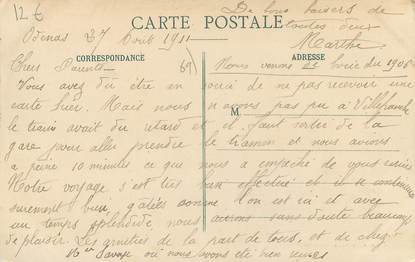 12 €
De bons baisers de
toutes deux
Marthe
CARTE POSTALE
27 Avril 1911
CORRESPONDANCE
ADRESSE
Chers Parents
69
Nous venons de
Vous avez du être en souci de ne pas recevoir une
carte hier. Mais nous n'avons pas pu à Villefranche
le train avait du retard et il faut sortir de la
M
gare pour aller prendre le tramon et nous avions
a peine 10 minutes ce que nous a empeché de vous
Notre voyage s'est tres bien effectué et il se continuera
surement bien, gatées comme l'on est ici et avec
un temps splendide nous aurons sans doute beaucoup
de plaisir. Les amitiés de la part de tous, et de chez
où nous avons été bien